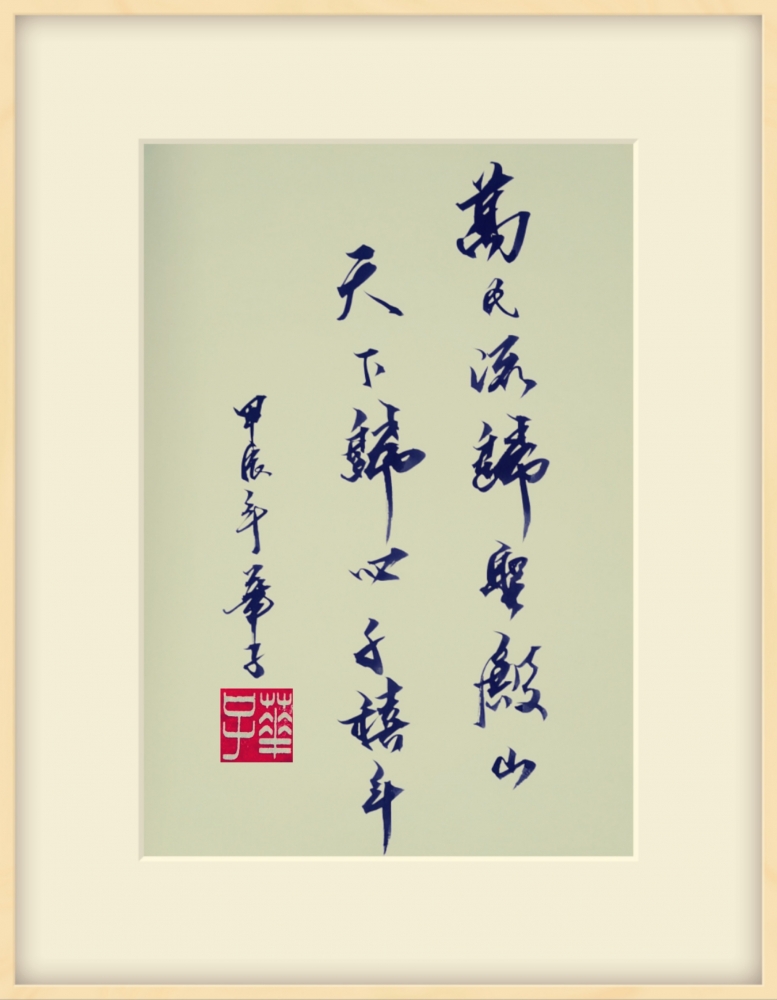 萬民流歸聖殿山
天下歸心千禧年
甲辰年華子
華子